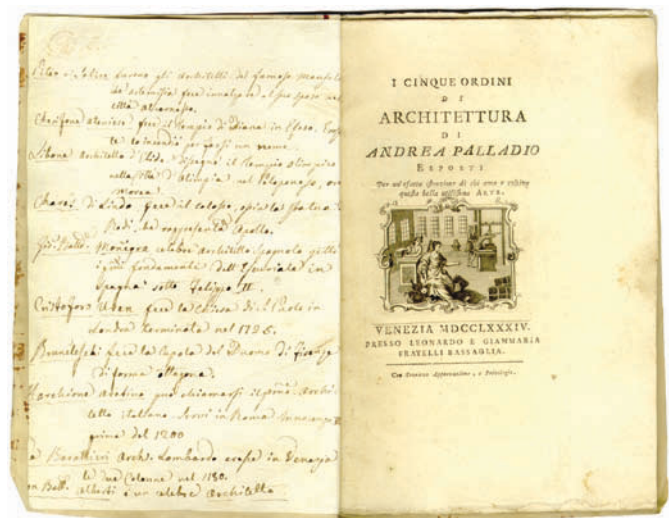 Piteo e Satiro furono gli Architetti del famoso Mausoleo
che Artemisia fece innalzare al suo sposo nel
città
Chersifone ateniese fece il tempio di Diana in Efeso.
te lo incendiò per farsi un nome.
Libone Architetto d'Elide, disegnò il tempio olimpico
nella città d'Olimpia nel Peloponeso,
Morea.
Chares di Lindo fece il colosso, ossia la statua
Rodi, che rappresenta Apollo.
Gio: Batta Monegra celebre Architetto Spagnolo gettò
i primi fondamenti dell'Escuriale in
Spagna sotto Filippo II.
Cristoforo Uren fece la chiesa di S. Paolo in
Londra terminata nel
Bruneleschi fece la Cupola del Duomo di Firenze
di forma ottagona.
Marchione Aretino può chiamarsi il primo Archi-
tetto italiano. Servì in Roma Innocenzo
prima del 1200
Barattieri Arch. Lombardo eresse in Venezia
le due Colonne nel 1180.
Batt. Alberti è un celebre Architetto
I CINQUE ORDINI
DI
ARCHITETTURA
DI
ANDREA PALLADIO
ESPOSTI
Per un'esatta istruzione di chi ama e coltiva
questa bella utilissima ARTE.
VENEZIA MDCCLXXXIV.
PRESSO LEONARDO E GIAMMARIA
FRATELLI BASSAGLIA.
Con Sovrana Approvazione, e Privilegio.